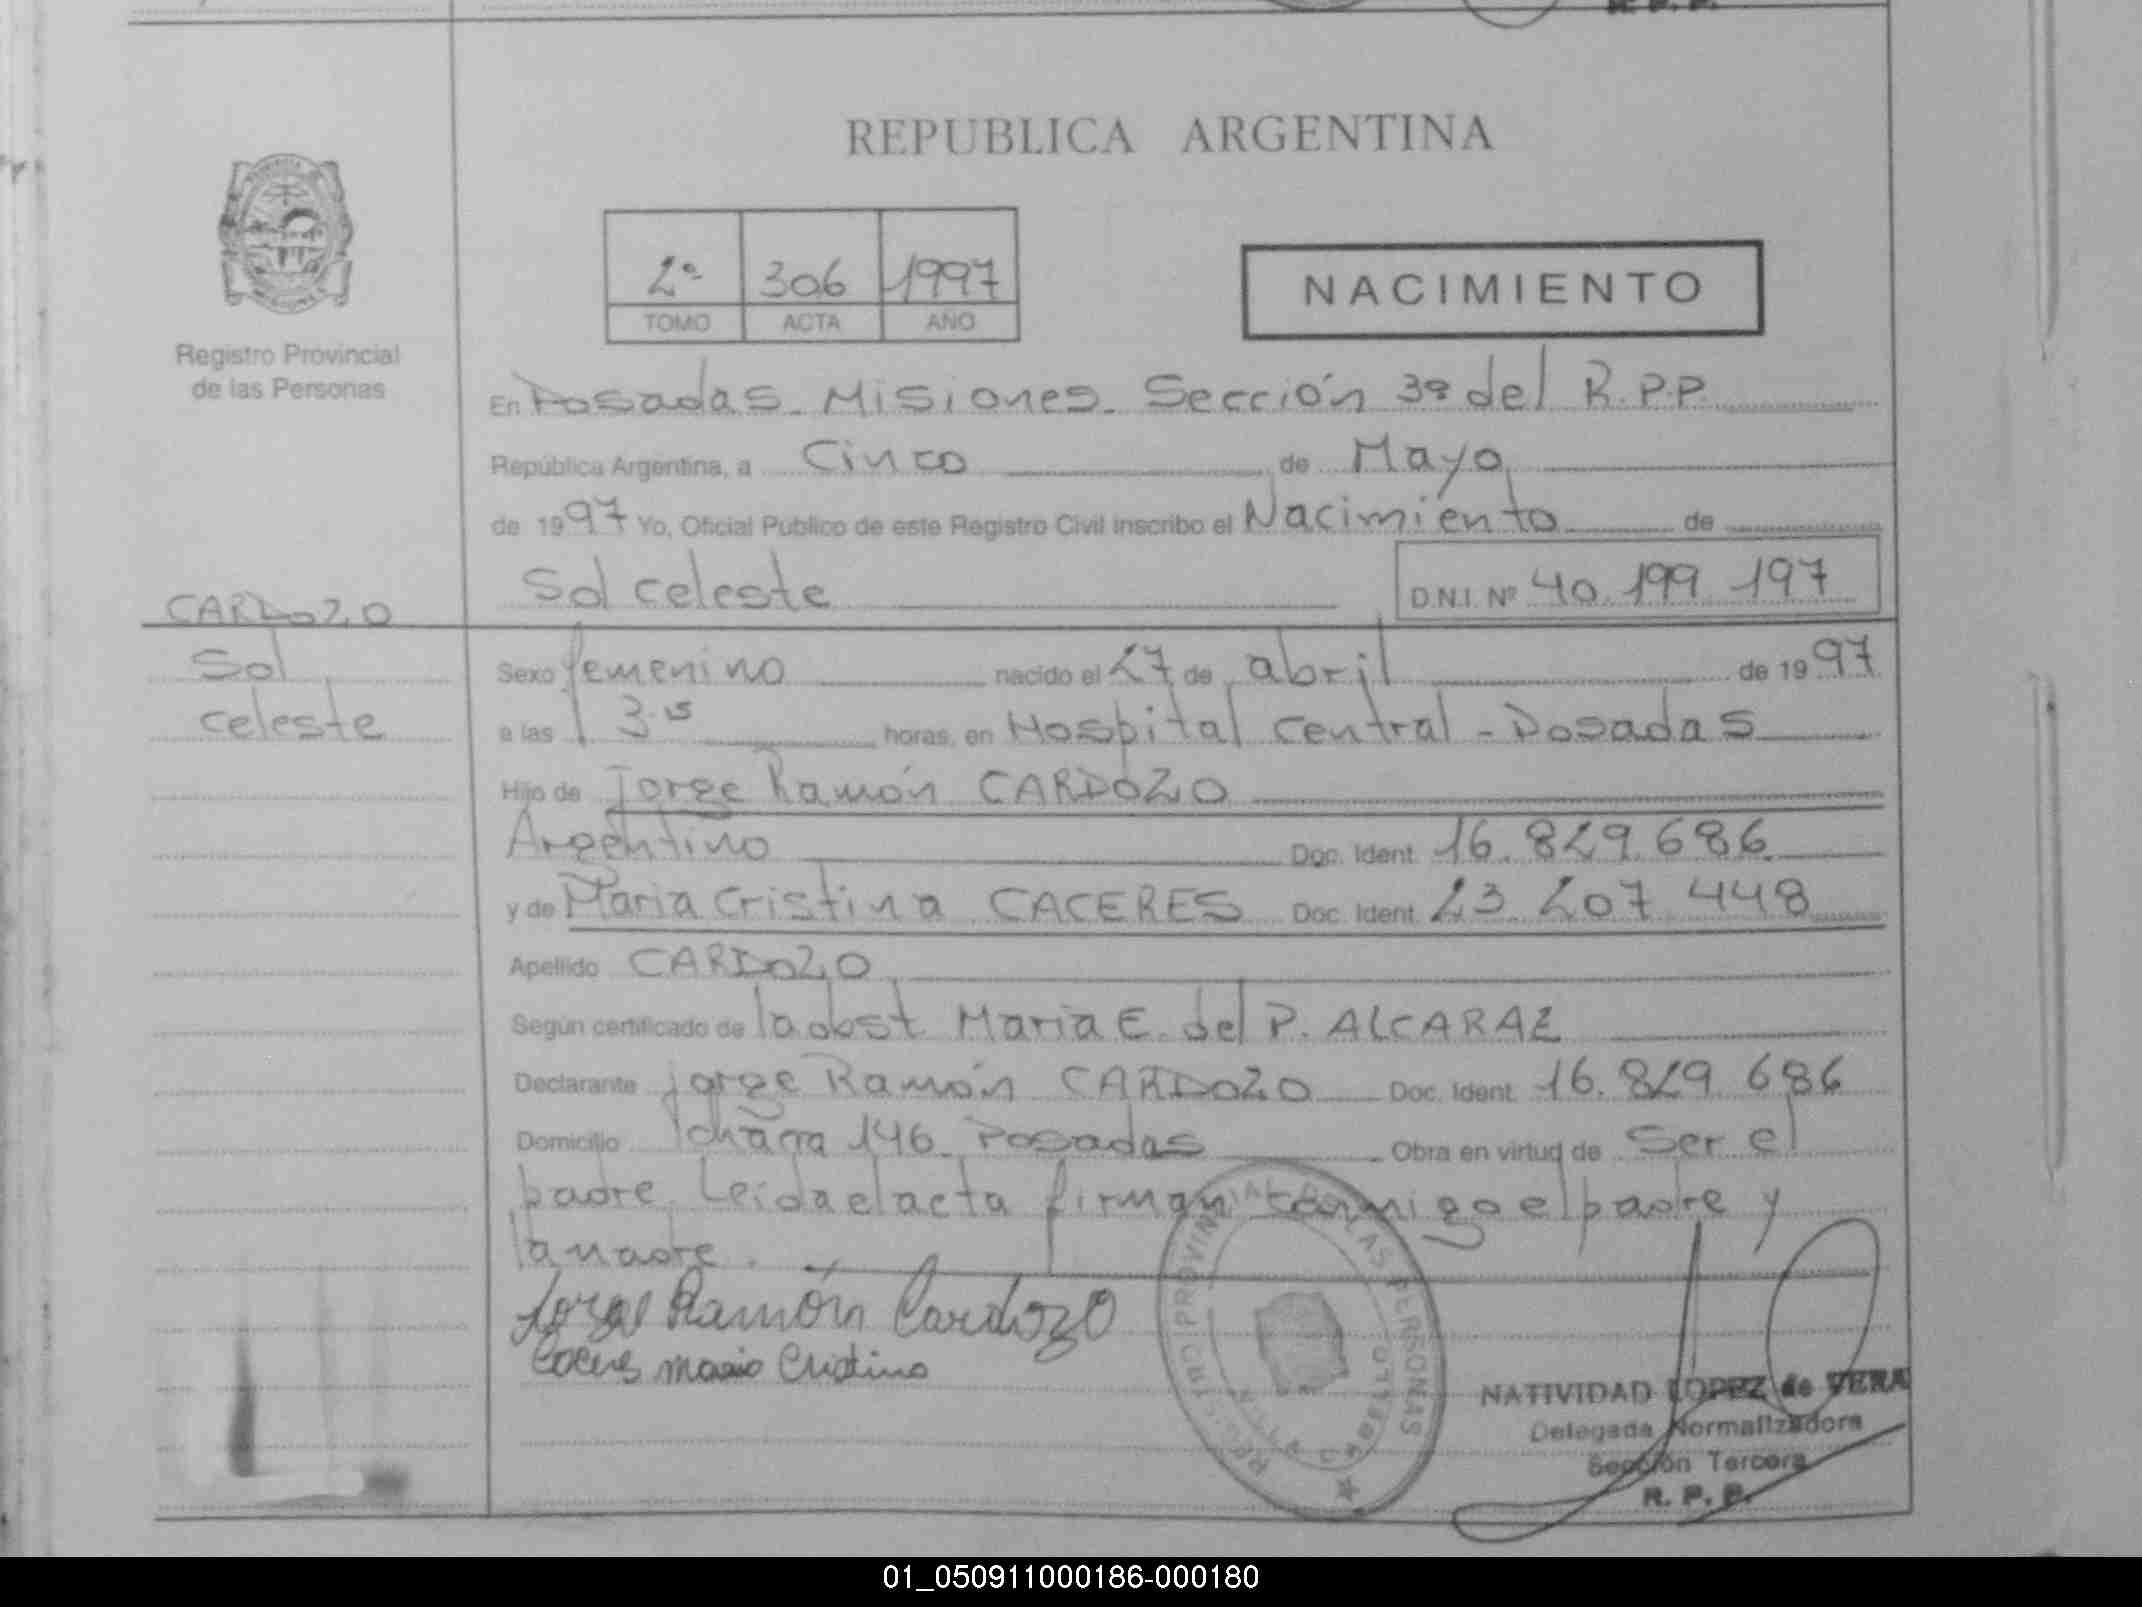 REPUBLICA ARGENTINA
2º 306 1997
TOMO ACTA AÑO
NACIMIENTO
Registro Provincial
de las Personas
En Posadas. Misiones. Sección 3º del R.P.P.
República Argentina, a Cinco de Mayo
de 1997 Yo, Oficial Publico de este Registro Civil inscribo el Nacimiento de
Sol celeste D.N.I. Nº 40.199.197
CARDOZO
Sol
celeste
Sexo femenino nacido el 27 de abril de 1997
a las 3.15 horas, en Hospital Central - Posadas
Hijo de Jorge Ramón CARDOZO
Argentino Doc. Ident. 16.829.686
y de Maria Cristina CACERES Doc. Ident. 23 207 448
Apellido CARDOZO
Según certificado de la obst Maria E. del P. ALCARAZ
Declarante Jorge Ramón CARDOZO Doc. Ident. 16.829.686
Domicilio 146 Posadas Obra en virtud de Ser el
padre. Leida el acta firman conmigo el padre y
la madre.
Jorge Ramón Cardozo
Maria Cristina
PROVINCIAL DE LAS PERSONAS
NATIVIDAD LOPEZ de VERA
Delegada Normalizadora
Sección Tercera
R. P. P.
01_050911000186-000180